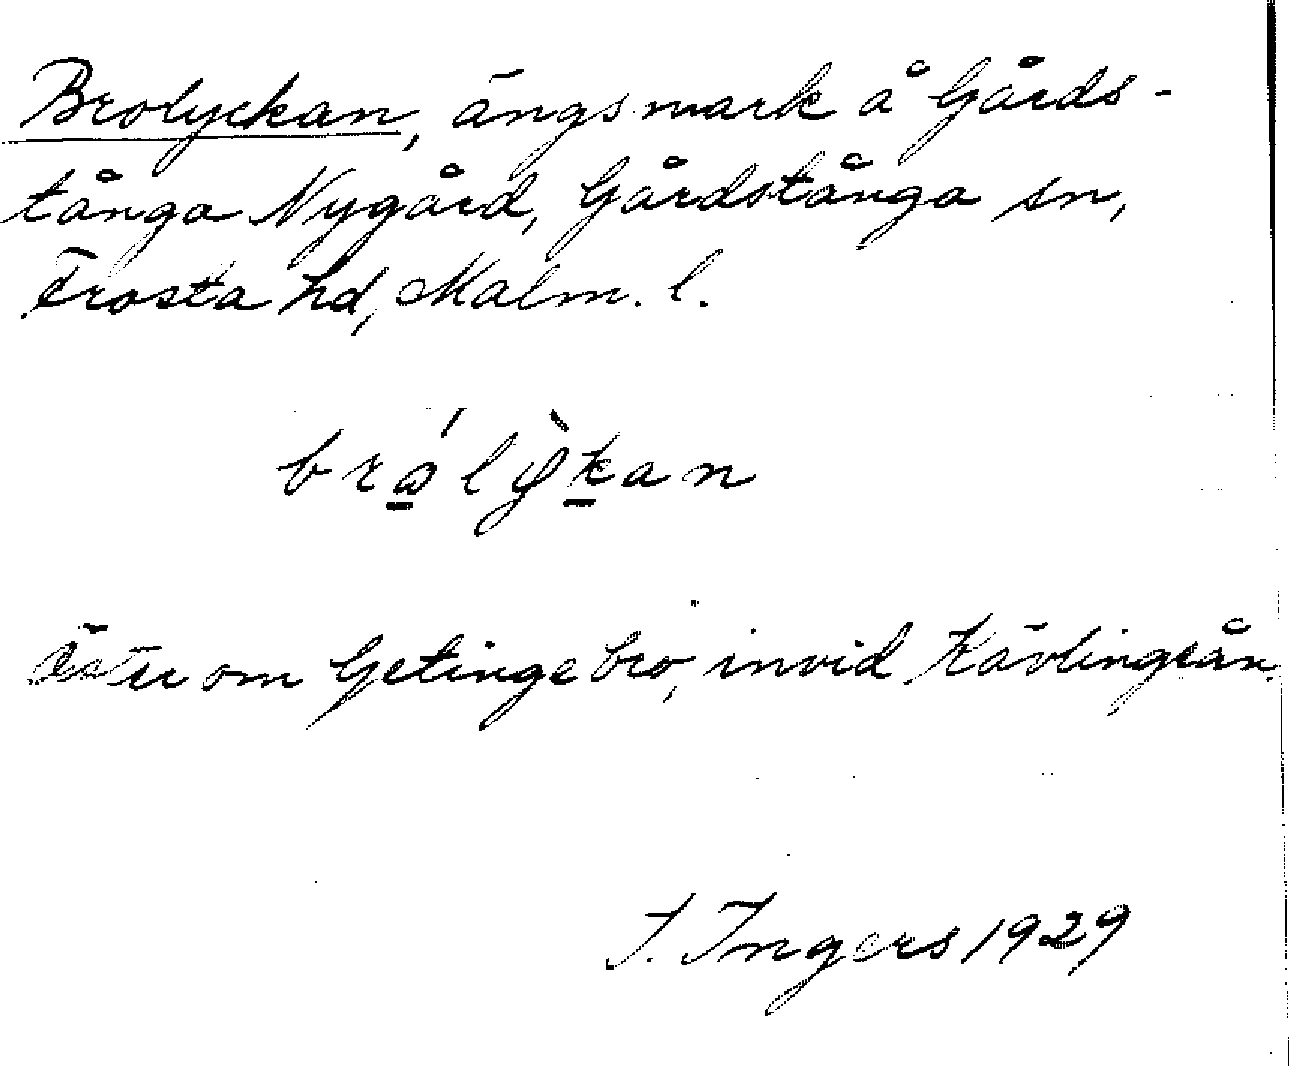 Brolyckan, ängsmark å Gårds-
tånga Nygård, Gårdstånga sn,
Frosta hd, Malm. l.
Öster om Getinge bro, invid Kävlingeån.
I. Ingers 1929